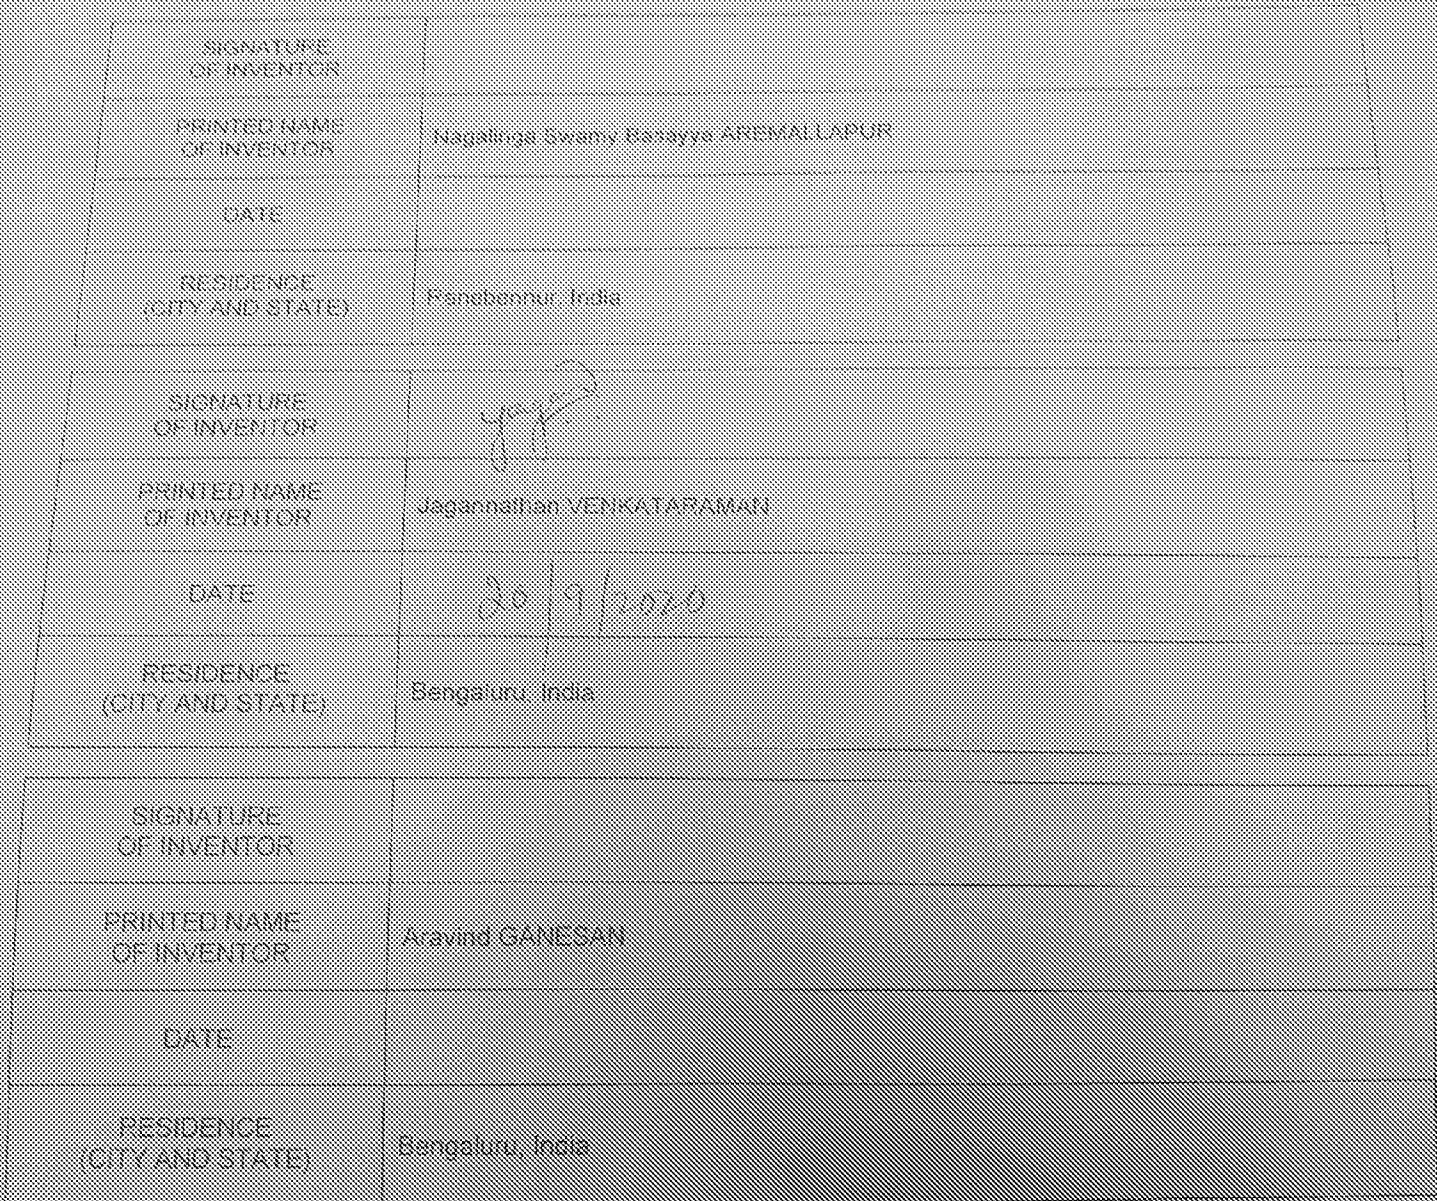 SIGNATURE
OF INVENTOR
PRINTED NAME
OF INVENTOR
Nagalinga Swamy Basayya AREMALLAPUR
DATE
RESIDENCE
(CITY AND STATE)
Ranebennur, India
SIGNATURE
OF INVENTOR
PRINTED NAME
OF INVENTOR
Jagannathan VENKATARAMAN
DATE
20/9/2020
RESIDENCE
(CITY AND STATE)
Bengaluru, India
SIGNATURE
OF INVENTOR
PRINTED NAME
OF INVENTOR
Aravind GANESAN
DATE
RESIDENCE
(CITY AND STATE)
Bangaluru, India